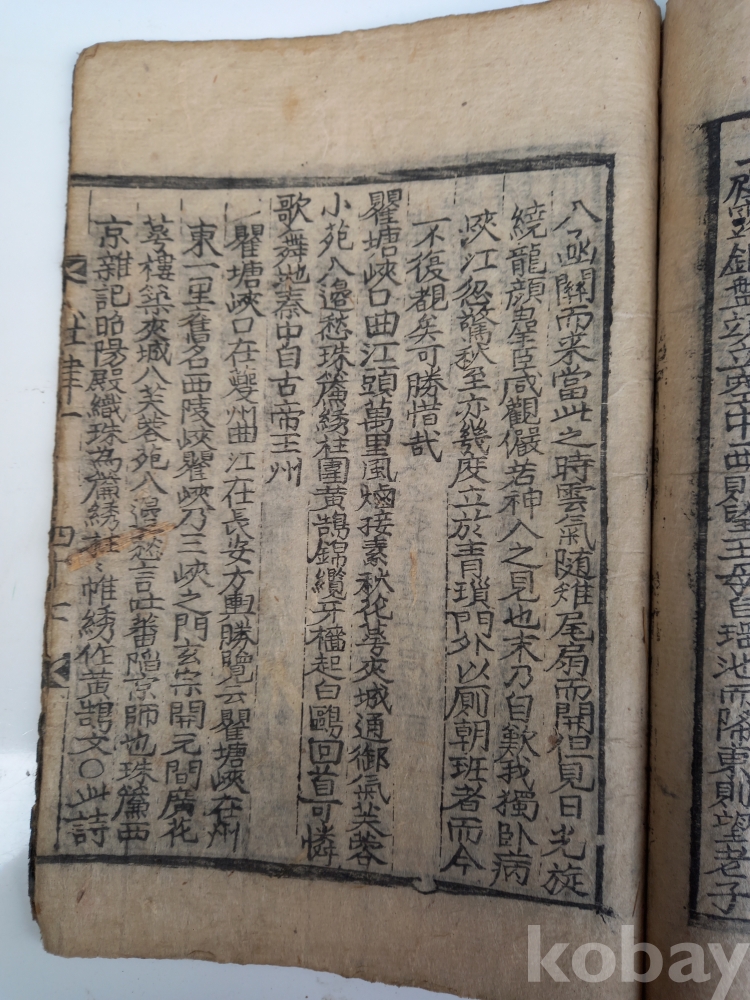 盤
立
中西則望王母自瑶池而降東則望老子
入函關而来當此之時雲氣随雉尾扇而開但見日光旋
繞龍顔羣臣咸觀儼若神人之見也末乃自歎我獨卧病
峽江忽驚秋至亦幾度立於青瑣門外以厠朝班者而今
不復覩矣可勝惜哉
瞿塘峽口曲江頭萬里風烟接素秋花萼夾城通御氣芙蓉
小苑入邉愁珠簾綉柱圍黄鵠錦纜牙檣起白鷗回首可憐
歌舞地秦中自古帝王州
一瞿塘峽口在夔州曲江在長安方輿勝覽云瞿塘峽在州
東一里舊名西陵峽瞿峽乃三峽之門玄宗開元間廣花
萼樓築夾城入芙蓉苑入邉愁言吐蕃陷京師也珠簾西
京雜記昭陽殿織珠為簾綉柱帷綉作黄鵠文○此詩
杜律一
四十
kobay